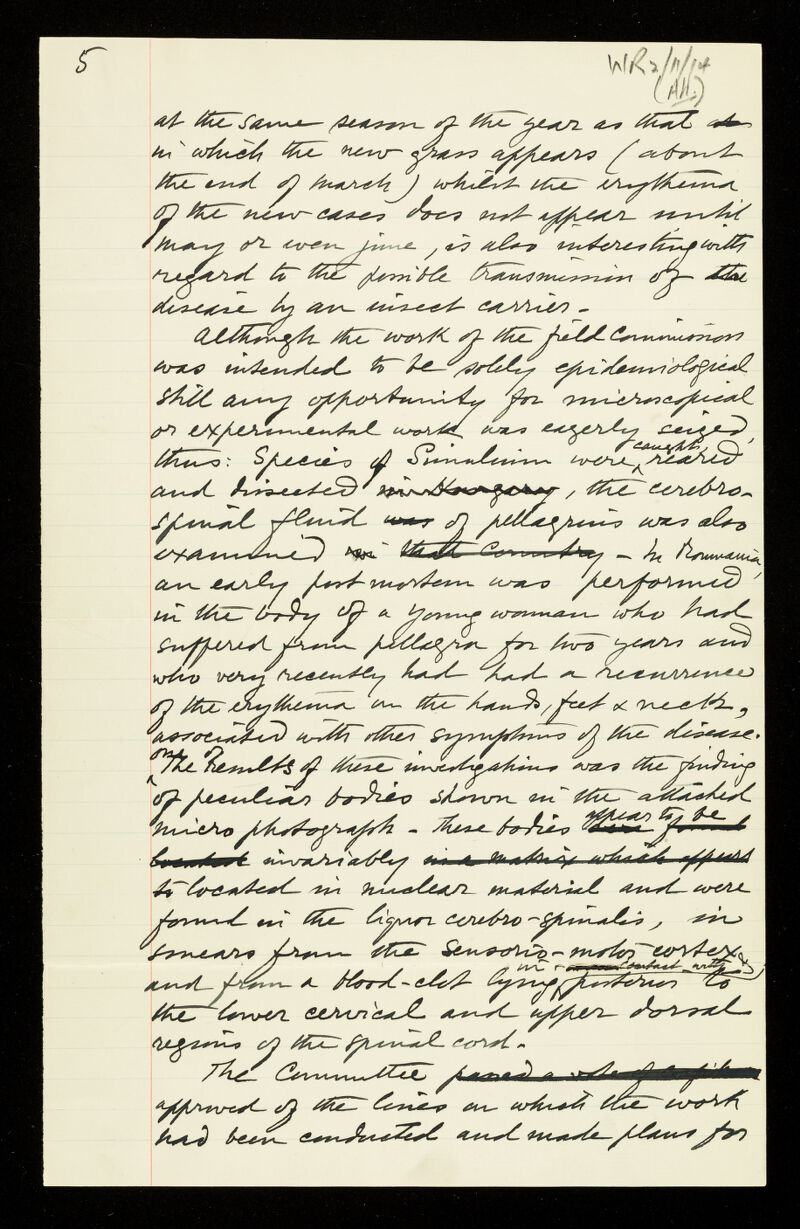 5
WR 2/11/14
(All.)
at the same season of the year as that as
in which the new grass appears (about
the end of march) whilst the erythema
of the new cases does not appear until
may or even june, is also interesting with
regard to the possible transmission of the
disease by an insect carrier -
Although the work of the field Commission
was intended to be solely epidemiological
still any opportunity for microscopical
or experimental work was eagerly seized,
caught,
thus: Species of Simulium were reared
and dissected in Hungary, the cerebro-
spinal fluid was of pellagrins was also
examined in that country - In Roumania,
an early post mortem was performed
in the body of a young woman who had
suffered from pellagra for two years and
who very recently had had a recurrence
of the erythema on the hands, feet & neck,
associated with other symptoms of the disease.
one of
The Results of these investigations was the finding
of peculiar bodies shown in the attached
appear to be
micro photograph - these bodies were found
located invariably in a matrix which appears
to located in nuclear material and were
found in the liquor cerebro-spinalis, in
smears from the sensorio-motor cortex
in contact with
and from a blood-clot lying posterior to
the lower cervical and upper dorsal
regions of the spinal cord.
The Committee passed a vote of
approved of the lines on which the work
had been conducted and made plans for